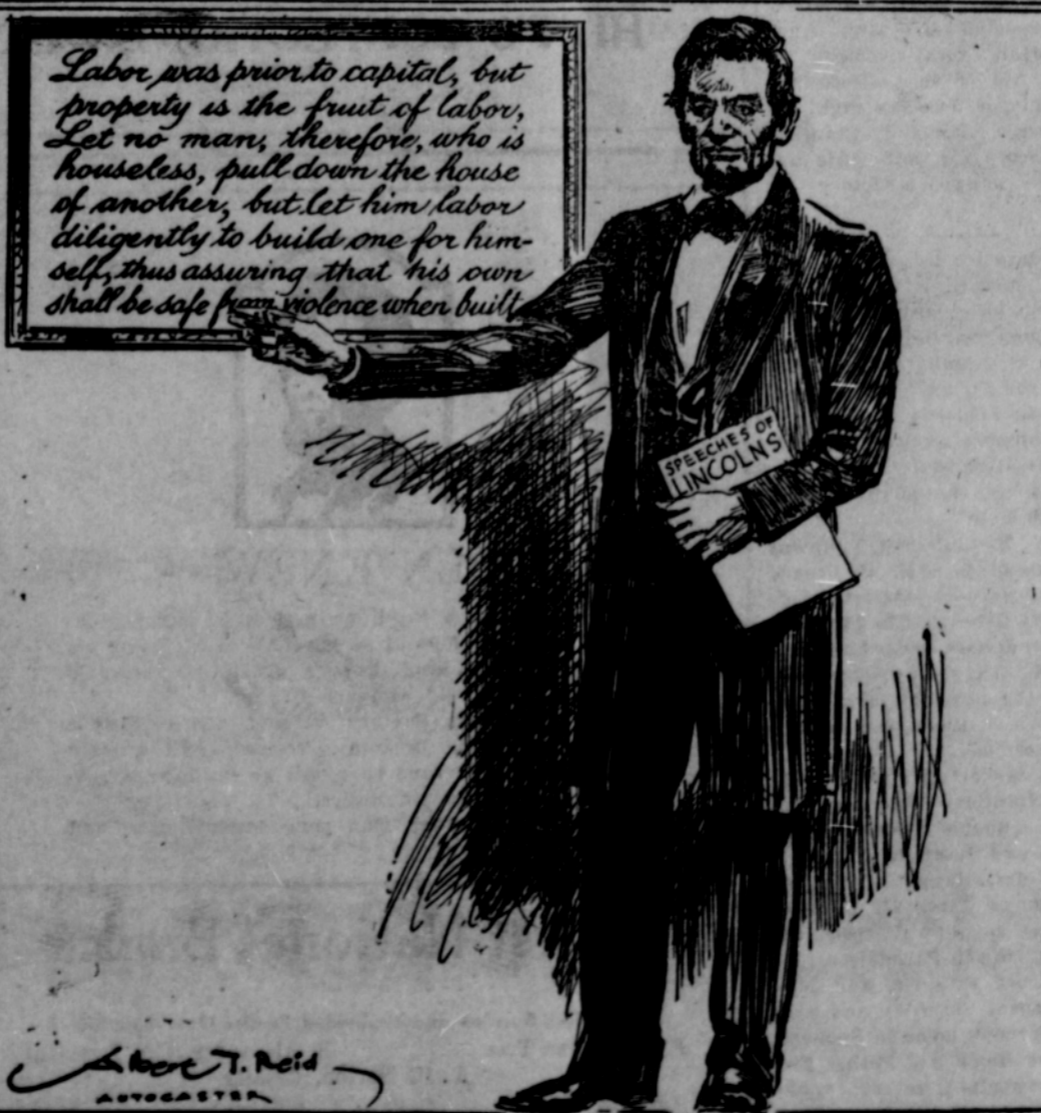 Labor was prior to capital, but
property is the fruit of labor,
Let no man, therefore, who is
houseless, pull down the house
of another, but let him labor
diligently to build one for him-
self, thus assuring that his own
shall be safe from violence when built
SPEECHES OF
LINCOLNS
Albert T. Reid
AUTOCASTER
HI